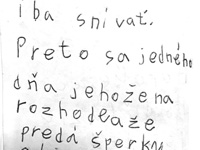 iba snívať.
Preto sa jedného
dňa jehožena
rozhodla že
predá šperky